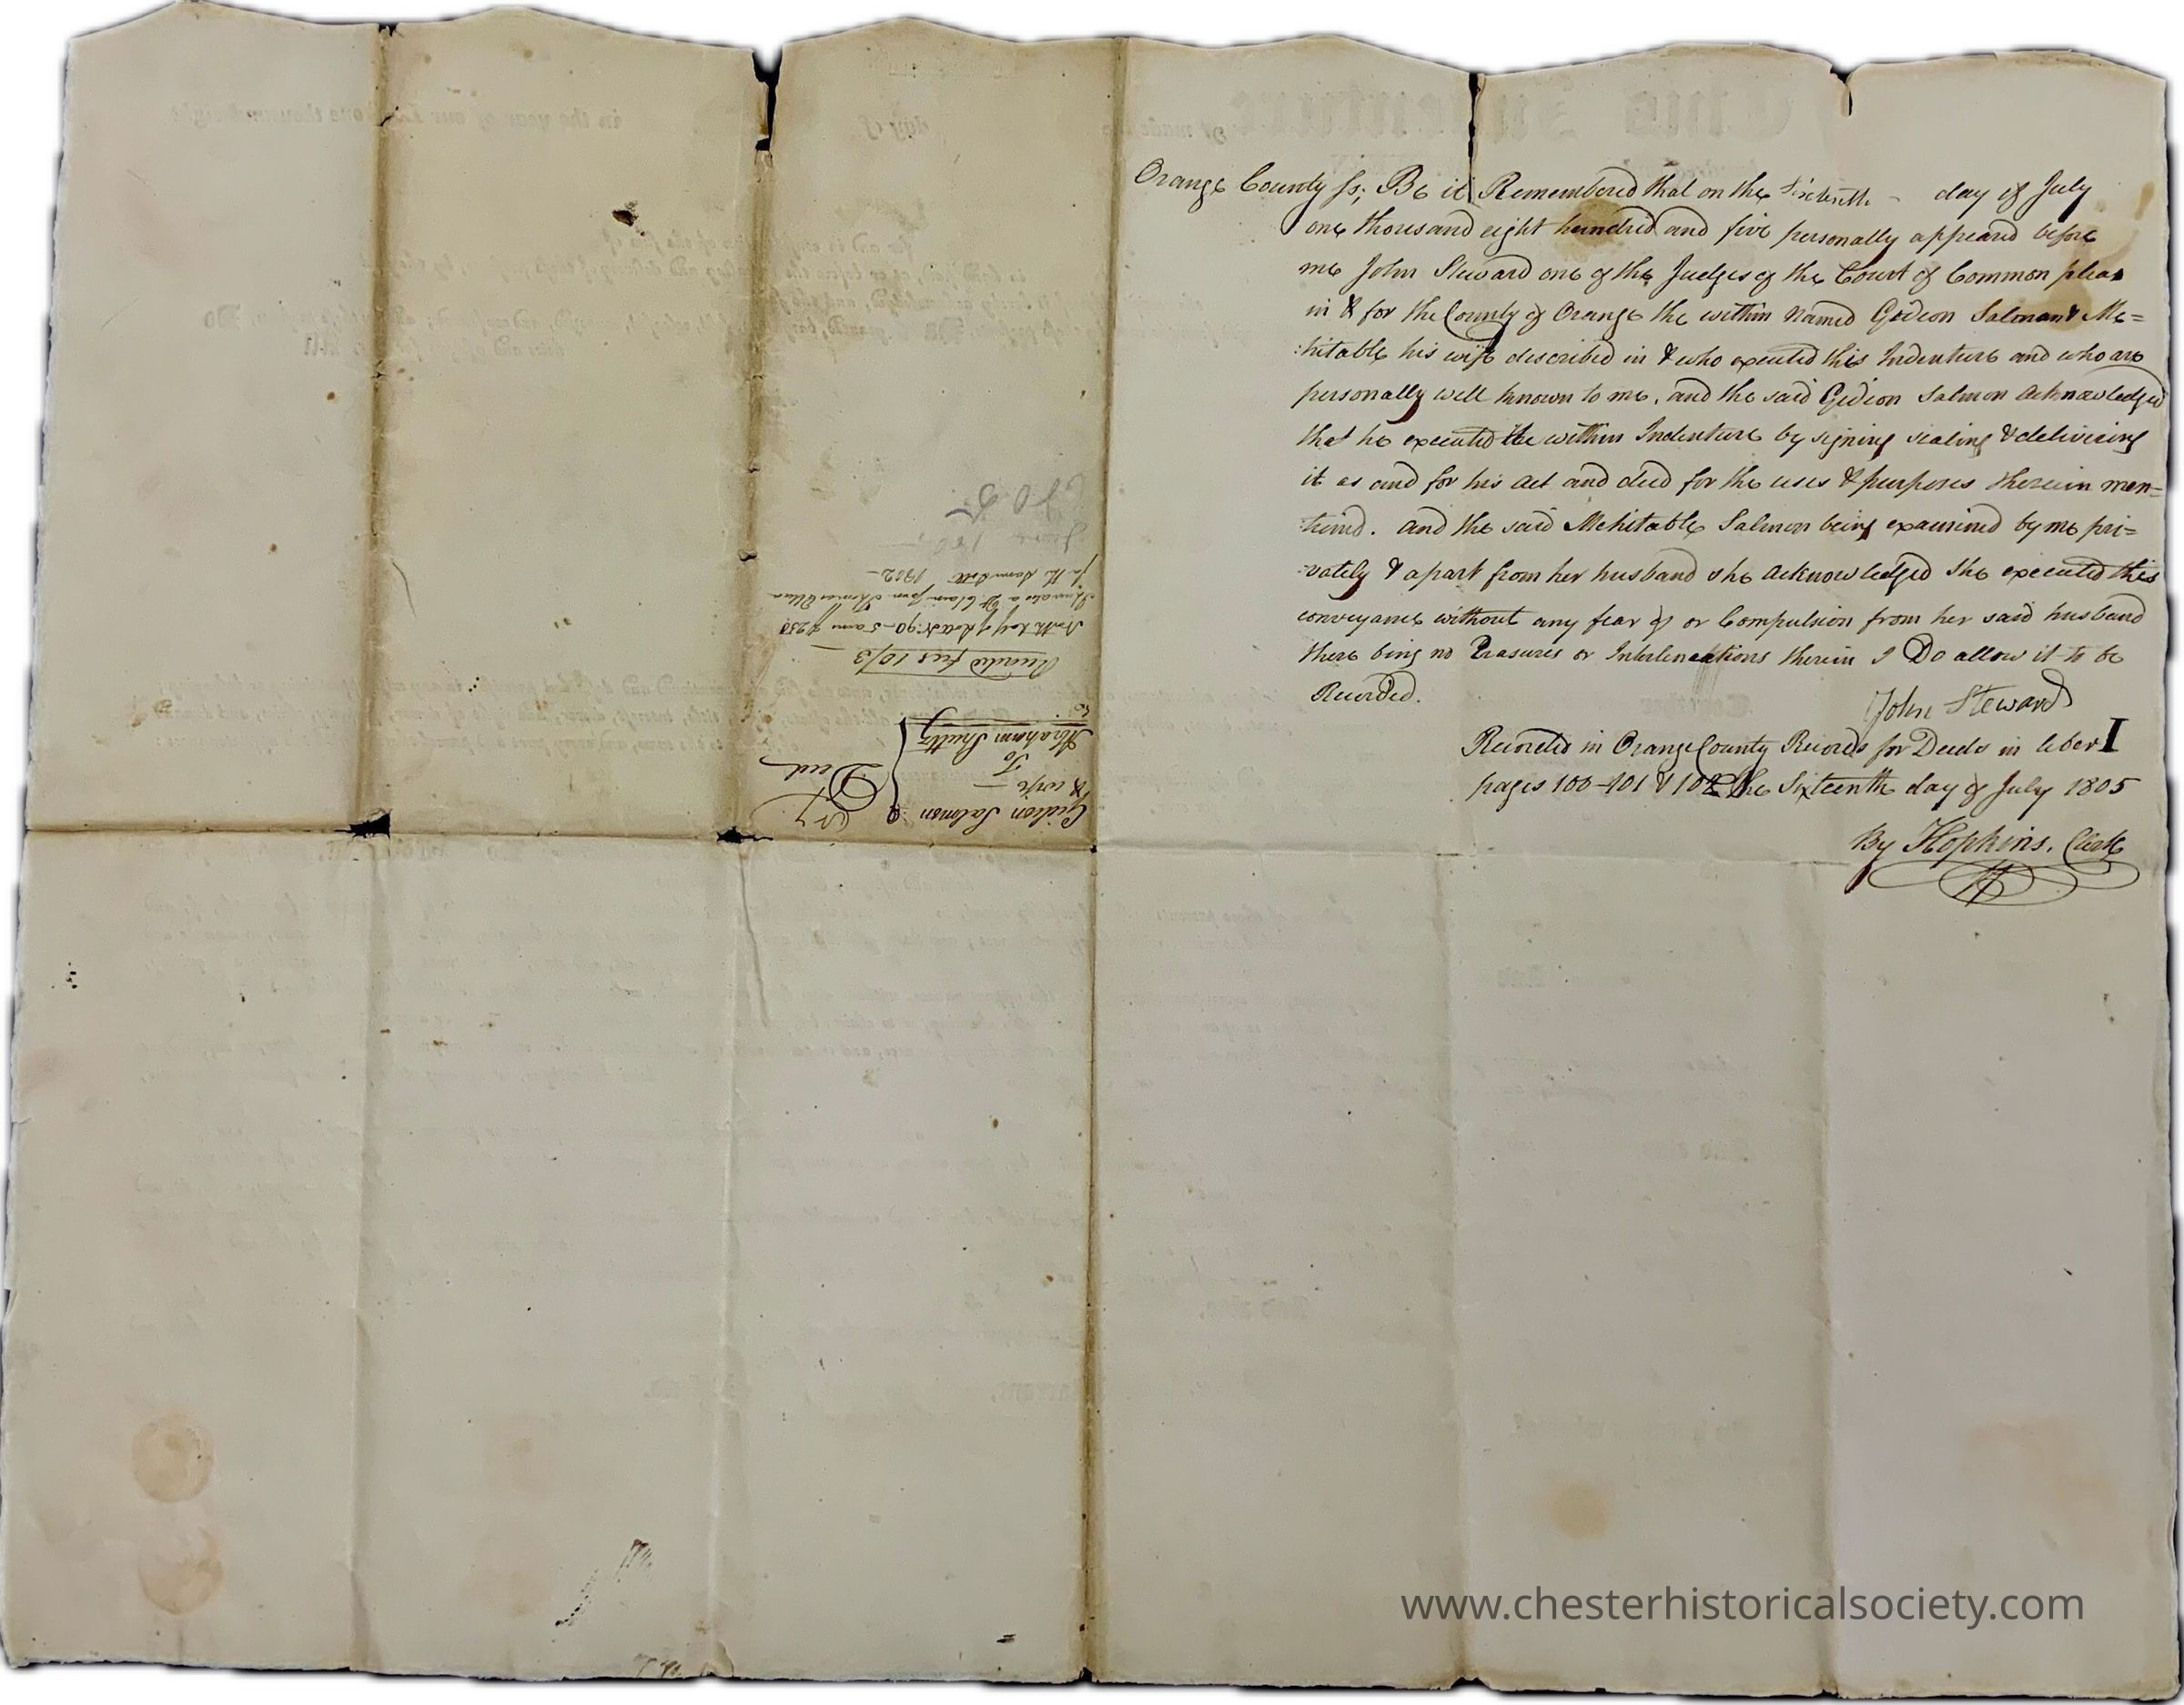 Orange County ss; Be it Remembered that on the Sixteenth - day of July
one thousand eight hundred and five personally appeared before
me John Steward one of the Judges of the Court of Common pleas
in & for the County of Orange the within Named Gideon Salmon & Me=
:hitable his wife described in & who executed this Indenture and who are
personally well known to me, and the said Gideon Salmon Acknowledged
that he executed the within Indenture by signing sealing & delivering
it as and for his Act and deed for the uses & purposes therein men=
:tioned. And the said Mehitable Salmon being examined by me pri=
:vately & apart from her husband she Acknowledged she executed this
conveyance without any fear of or Compulsion from her said husband
there being no Erasures or Interlineations therein I Do allow it to be
Recorded.
John Steward
Recorded in Orange County Records for Deeds in liber I
pages 100-101 & 102 the Sixteenth day of July 1805
By Hopkins, Clerk
Gideon Salmon
& wife
To
Abraham Shultz
Deed
Recorded fees 10/3
North half of Lott No 90-5 am
from Thomas Ellison
for the same Lott
www.chesterhistoricalsociety.com